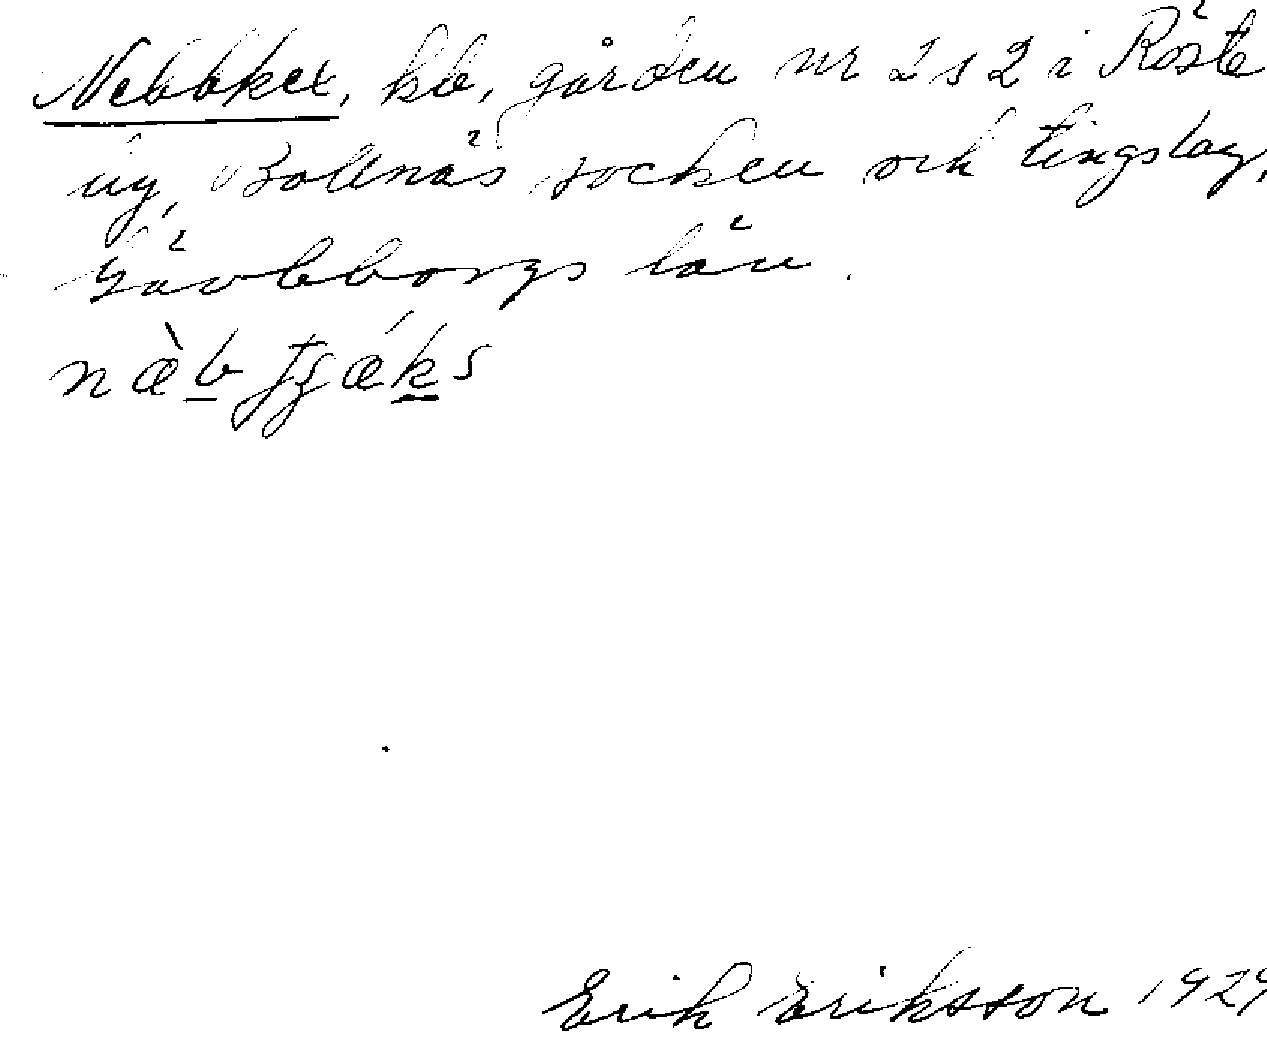 Nebbkex, kb, gården nr 2 s 2 i Röste
by, Bollnäs socken och tingslag,
Gävleborgs län.
næ̀b ʈʂǽks
Erik Eriksson 1929